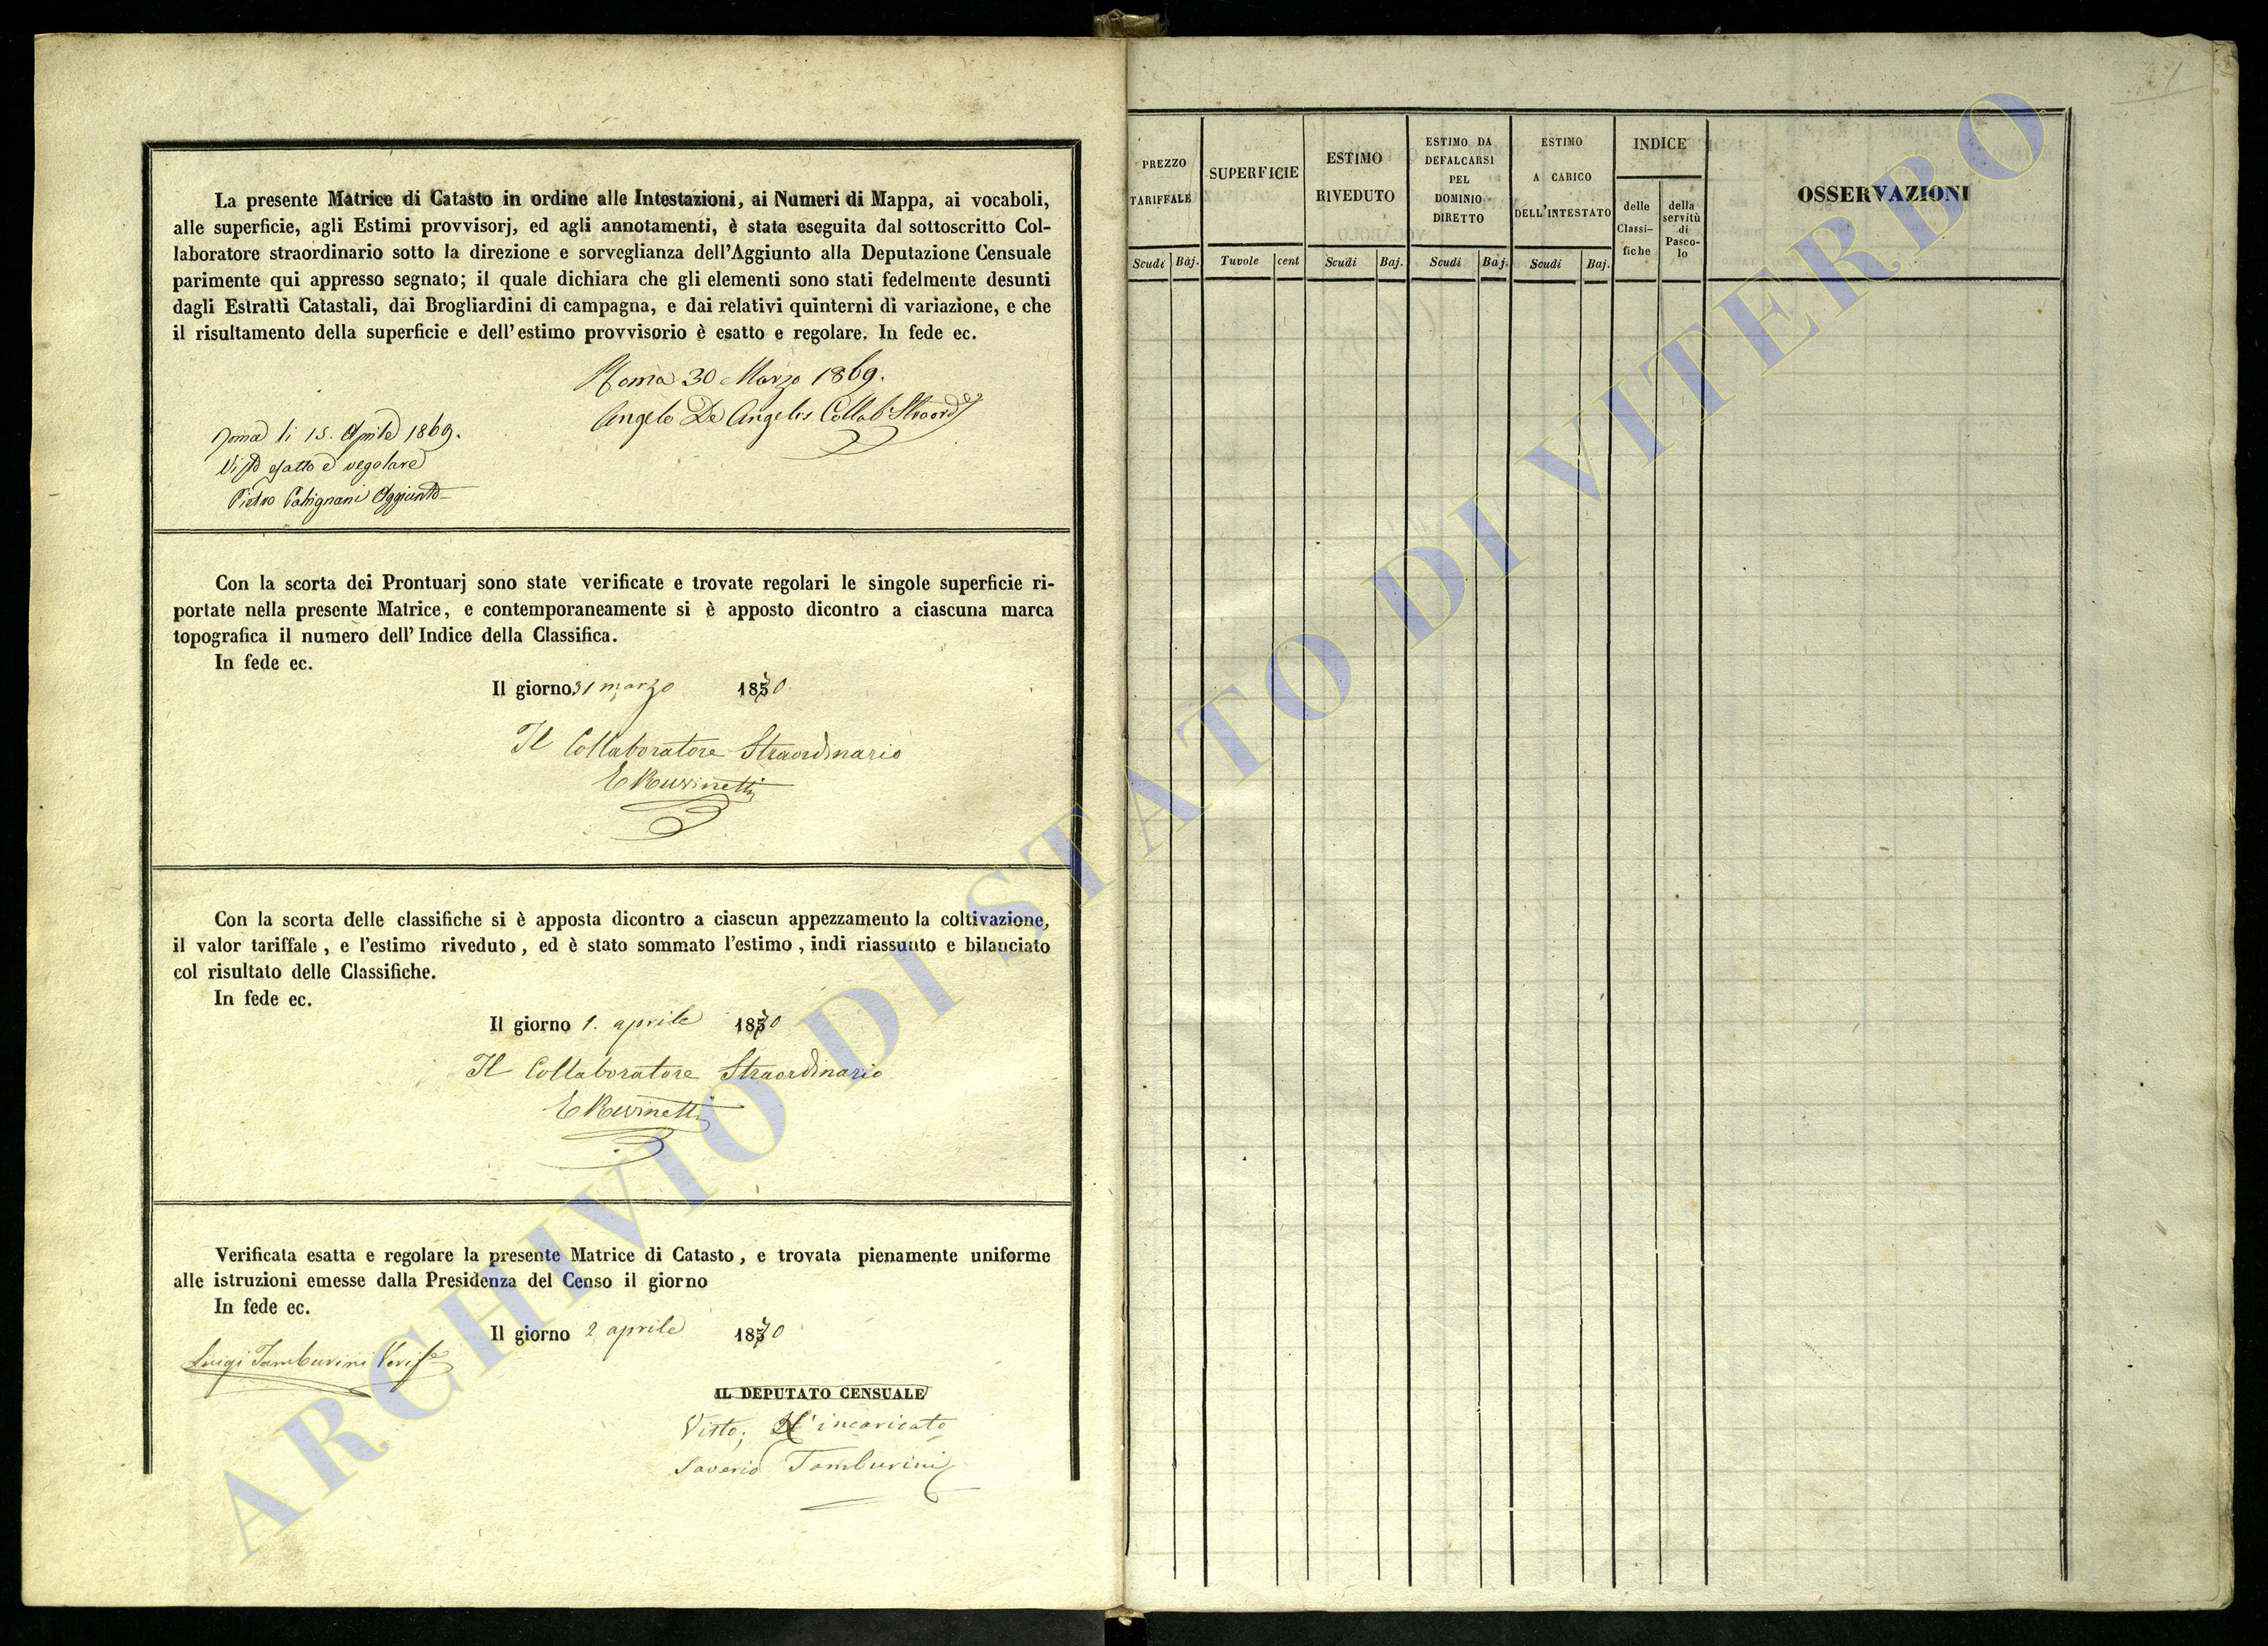 La presente Matrice di Catasto in ordine alle Intestazioni, ai Numeri di Mappa, ai vocaboli,
alle superficie, agli Estimi provvisorj, ed agli annotamenti, è stata eseguita dal sottoscritto Col-
laboratore straordinario sotto la direzione e sorveglianza dell'Aggiunto alla Deputazione Censuale
parimente qui appresso segnato; il quale dichiara che gli elementi sono stati fedelmente desunti
dagli Estratti Catastali, dai Brogliardini di campagna, e dai relativi quinterni di variazione, e che
il risultamento della superficie e dell'estimo provvisorio è esatto e regolare. In fede ec.
Roma 30 Marzo 1869.
Angelo De Angelis Collab. Straord.
Roma li 15. Aprile 1869.
Visto esatto e regolare
Pietro Aggiunto
Con la scorta dei Prontuarj sono state verificate e trovate regolari le singole superficie ri-
portate nella presente Matrice, e contemporaneamente si è apposto dicontro a ciascuna marca
topografica il numero dell'Indice della Classifica.
In fede ec.
Il giorno 31 marzo 1870
Il Collaboratore Straordinario
Con la scorta delle classifiche si è apposta dicontro a ciascun appezzamento la coltivazione,
il valor tariffale, e l'estimo riveduto, ed è stato sommato l'estimo, indi riassunto e bilanciato
col risultato delle Classifiche.
In fede ec.
Il giorno 1. aprile 1870
Il Collaboratore Straordinario
Verificata esatta e regolare la presente Matrice di Catasto, e trovata pienamente uniforme
alle istruzioni emesse dalla Presidenza del Censo il giorno
In fede ec.
Il giorno 2 aprile 1870
Luigi Tamburini Verif.e
IL DEPUTATO CENSUALE
Visto; L'incaricato
Saverio Tamburini
PREZZO
TARIFFALE
Scudi Baj.
SUPERFICIE
Tavole cent
ESTIMO
RIVEDUTO
Scudi Baj.
ESTIMO DA
DEFALCARSI
PEL
DOMINIO
DIRETTO
Scudi Baj.
ESTIMO
A CARICO
DELL'INTESTATO
Scudi Baj.
INDICE
delle
Classi-
fiche
della
servitù
di
Pasco-
lo
OSSERVAZIONI
1
ARCHIVIO DI STATO DI VITERBO